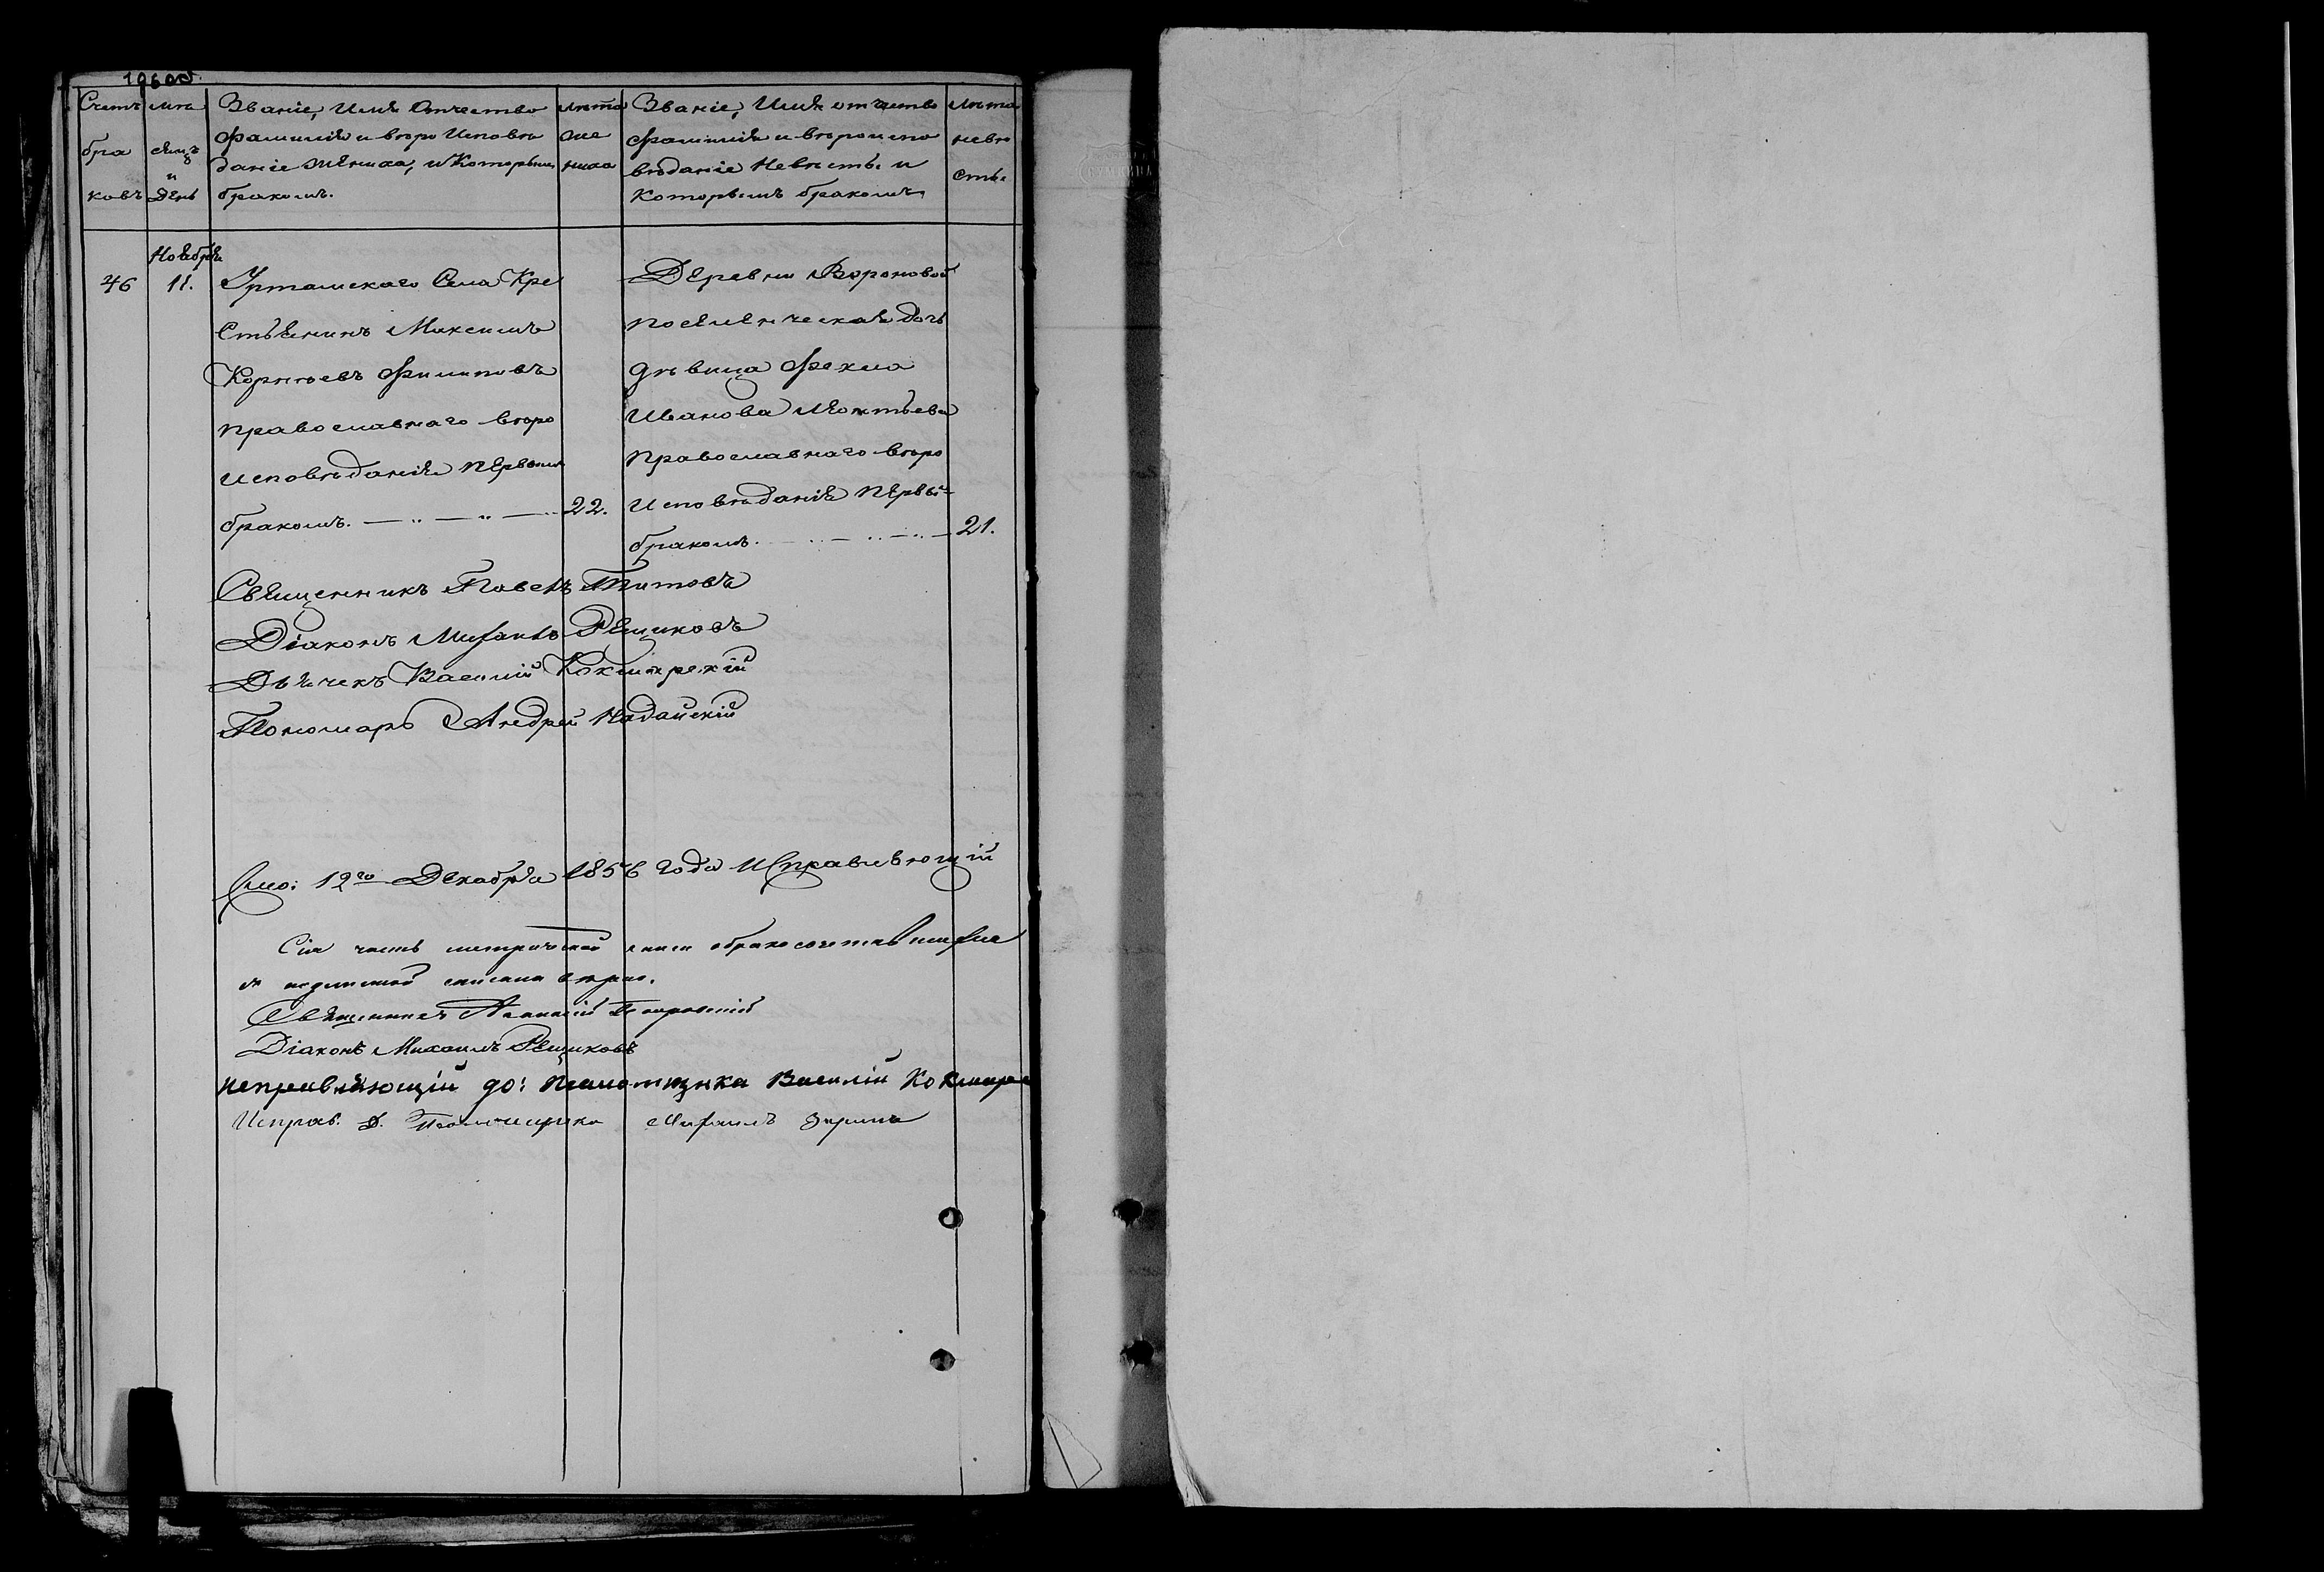 196об.
Счетъ браковъ
мѣсяцъ и день
Званіе, Имя Отчество
Фамилія и вѣро Исповѣ
даніе Жениха, и Которымъ
бракомъ.
лѣта жениха
Званіе, Имя отчество
Фамилія и вѣроиспо
вѣданіе Невѣсты и
Которымъ бракомъ
лѣта невѣсты
Ноября
46 11.
Уртамскаго Села Кре
стьянинъ Максимъ
Корнѣевъ Филиповъ
православнаго вѣро
исповѣданія первымъ
бракомъ. 22.
Деревни Вороновой
поселенческая дочь
дѣвица Фекла
Иванова Леонтьева
православнаго вѣро
исповѣданія первы
бракомъ. 21.
Священникъ Павелъ Титовъ
Діаконъ Михаилъ Рѣщиковъ
Дьячекъ Василій
Пономарь Андрей Надайскій
12го Декабря 1856 года Исправляющій
Сія часть метрической книги о бракосочетавшихся
съ подлинной списана вѣрно.
Священникъ
Діаконъ Михаилъ Рѣщиковъ
исправляющій до: Псаломщика Василій
Исправ. д. Псаломщика Михаилъ